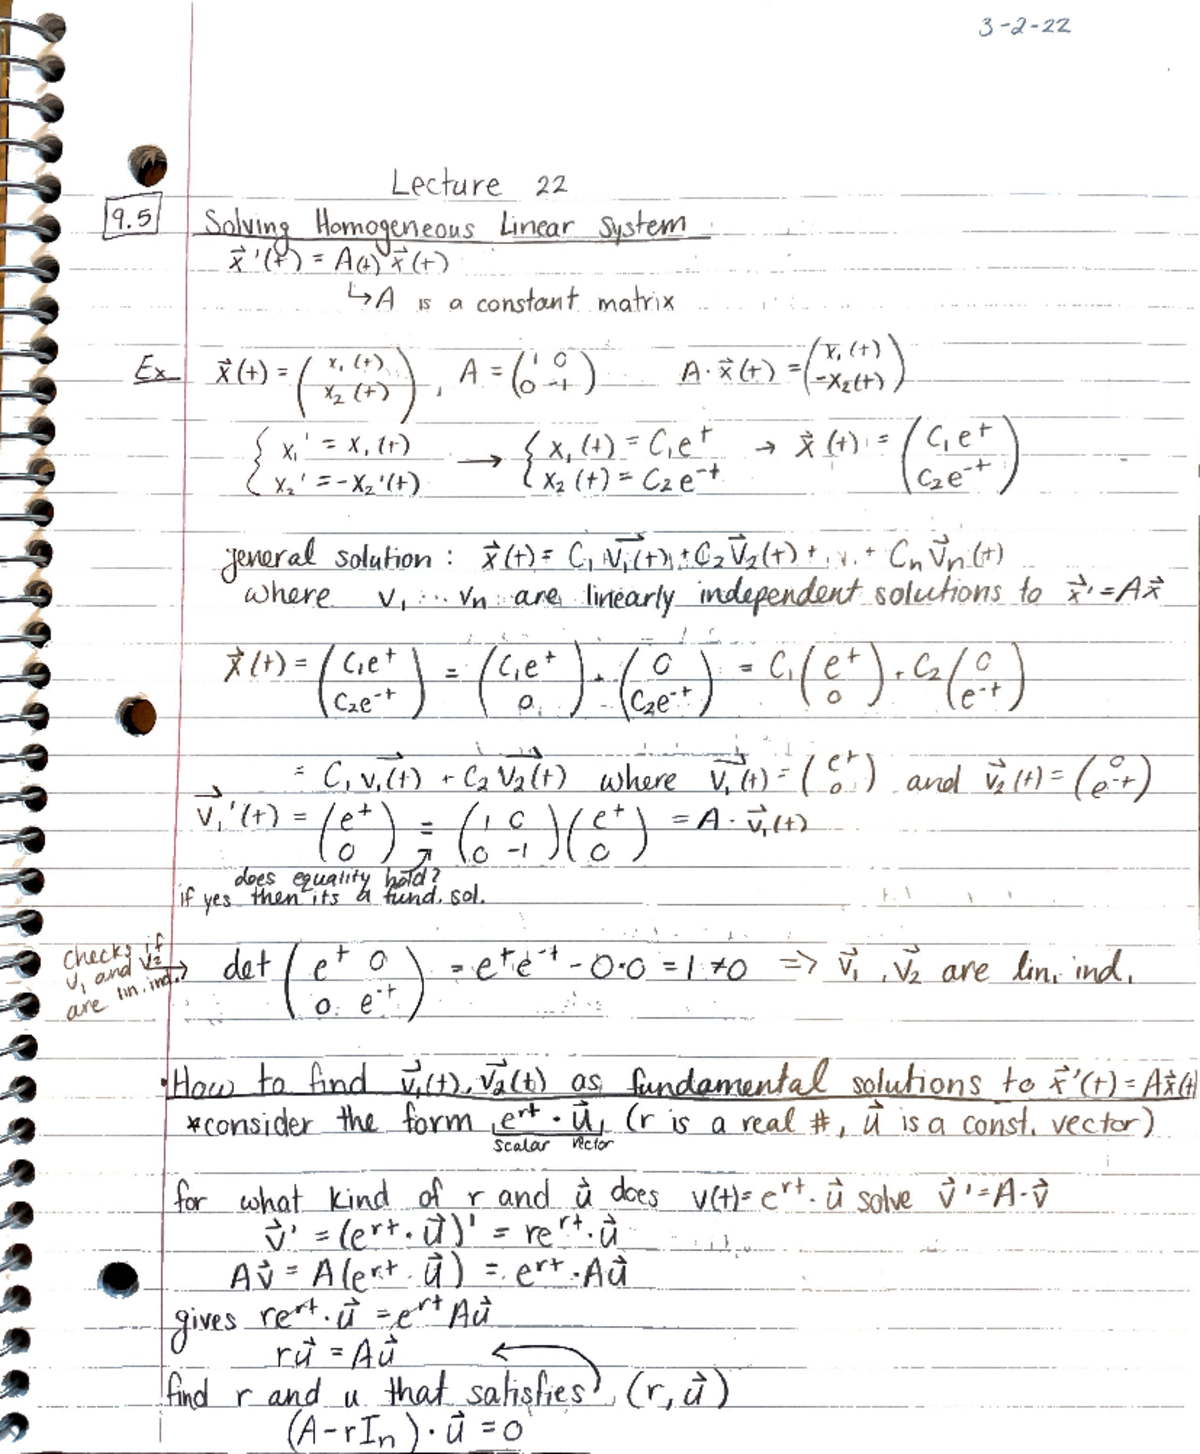 3-2-22
Lecture 22
9.5 Solving Homogeneous Linear System
x⃗'(t) = A(t) x⃗(t)
↳ A is a constant matrix
Ex x⃗(t) = (x₁(t) / x₂(t)), A = (1 0 / 0 -1) A·x⃗(t) = (x₁(t) / -x₂(t))
{ x₁' = x₁(t) / x₂' = -x₂'(t) → { x₁(t) = C₁e^t / x₂(t) = C₂e^-t → x⃗(t) = (C₁e^t / C₂e^-t)
general solution: x⃗(t) = C₁v⃗₁(t) + C₂v⃗₂(t) + ... + Cₙv⃗ₙ(t)
where v₁ ... vₙ are linearly independent solutions to x⃗' = Ax⃗
x⃗(t) = (C₁e^t / C₂e^-t) = (C₁e^t / 0) + (0 / C₂e^-t) = C₁(e^t / 0) + C₂(0 / e^-t)
= C₁v⃗₁(t) + C₂v⃗₂(t) where v⃗₁(t) = (e^t / 0) and v⃗₂(t) = (0 / e^-t)
v⃗₁'(t) = (e^t / 0) = (1 0 / 0 -1)(e^t / 0) = A·v⃗₁(t)
does equality hold?
if yes then its a fund. sol.
checks if
v₁ and v₂
are lin. ind. → det(e^t 0 / 0 e^-t) = e^t e^-t - 0·0 = 1 ≠ 0 => v⃗₁, v⃗₂ are lin. ind.
• How to find v⃗₁(t), v⃗₂(t) as fundamental solutions to x⃗'(t) = Ax⃗(t)
*consider the form e^rt · u⃗, (r is a real #, u⃗ is a const. vector)
scalar vector
for what kind of r and u⃗ does v(t) = e^rt · u⃗ solve v⃗' = A·v⃗
v⃗' = (e^rt · u⃗)' = re^rt · u⃗
Av⃗ = A(e^rt · u⃗) = e^rt · Au⃗
gives re^rt · u⃗ = e^rt Au⃗
ru⃗ = Au⃗ ←
find r and u that satisfies (r, u⃗)
(A - rIₙ) · u⃗ = 0